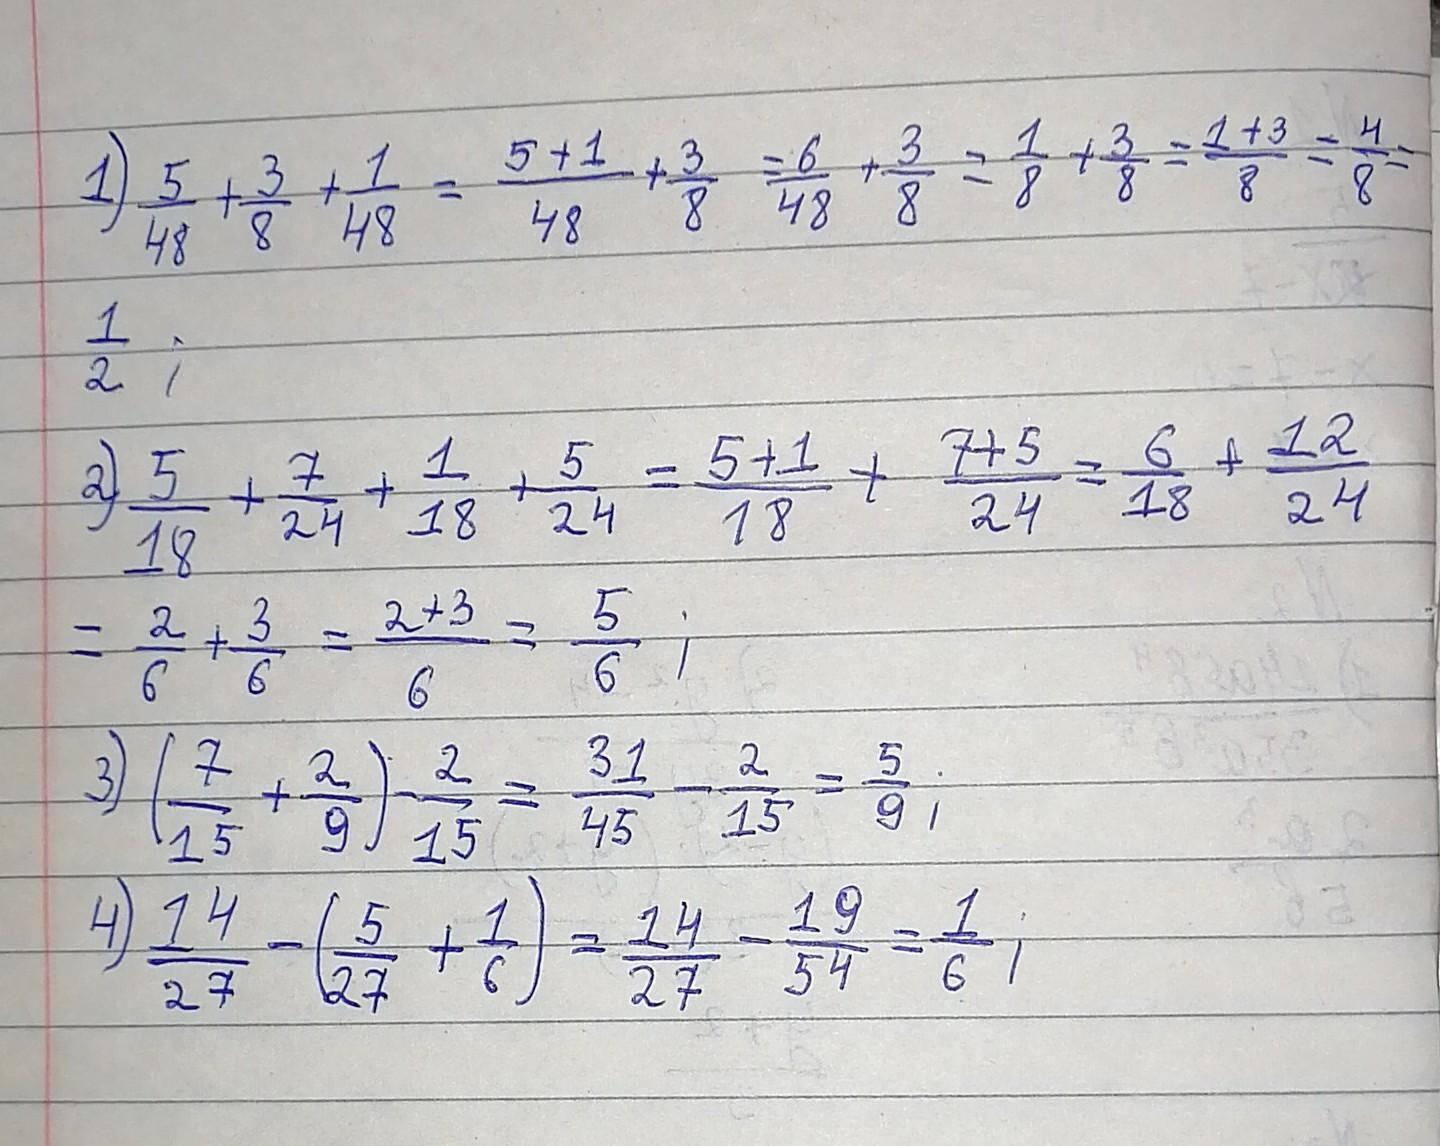 1) 5/48 + 3/8 + 1/48 = (5+1)/48 + 3/8 = 6/48 + 3/8 = 1/8 + 3/8 = (1+3)/8 = 4/8 =
1/2 ;
2) 5/18 + 7/24 + 1/18 + 5/24 = (5+1)/18 + (7+5)/24 = 6/18 + 12/24
= 2/6 + 3/6 = (2+3)/6 = 5/6 ;
3) (7/15 + 2/9) - 2/15 = 31/45 - 2/15 = 5/9 ;
4) 14/27 - (5/27 + 1/6) = 14/27 - 19/54 = 1/6 ;